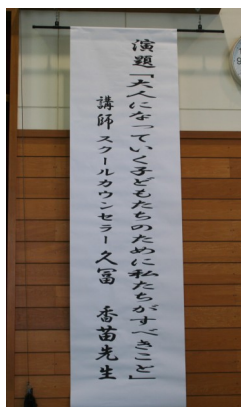 演題「大人になっていく子どもたちのために私たちがすべきこと」
講師 スクールカウンセラー 久冨 香苗先生